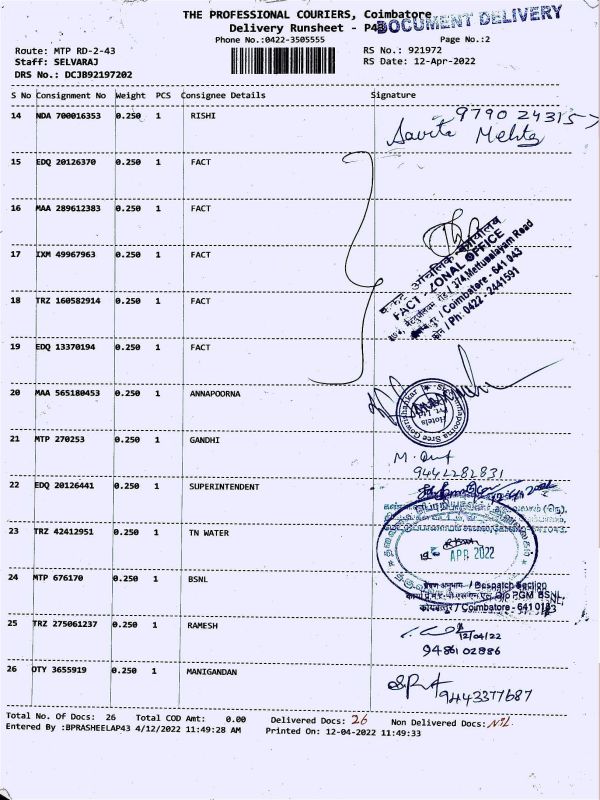 THE PROFESSIONAL COURIERS, Coimbatore
DOCUMENT DELIVERY
Delivery Runsheet - P43
Phone No.:0422-3505555 Page No.:2
Route: MTP RD-2-43 RS No.: 921972
Staff: SELVARAJ RS Date: 12-Apr-2022
DRS No.: DCJB92197202
S No Consignment No Weight PCS Consignee Details Signature
14 NDA 700016353 0.250 1 RISHI 9790 24315
Savita Mehta
15 EDQ 20126370 0.250 1 FACT
16 MAA 289612383 0.250 1 FACT
17 IXM 49967963 0.250 1 FACT
आंचलिक कार्यालय
FACT - ZONAL OFFICE
374, Mettupalayam Road
/ Coimbatore - 641 043
/ Ph: 0422 - 2441591
18 TRZ 160582914 0.250 1 FACT
19 EDQ 13370194 0.250 1 FACT
20 MAA 565180453 0.250 1 ANNAPOORNA
Sree Annapoorna Sree Gowrishankar
Hotels
Pvt. Ltd.
21 MTP 270253 0.250 1 GANDHI
9442282831
22 EDQ 20126441 0.250 1 SUPERINTENDENT
23 TRZ 42412951 0.250 1 TN WATER
APR 2022
24 MTP 676170 0.250 1 BSNL
प्रेषण अनुभाग / Despatch Section
O/o PGM BSNL,
कोयंबत्तूर / Coimbatore - 641 043
25 TRZ 275061237 0.250 1 RAMESH
12/04/22
9486102886
26 OTY 3655919 0.250 1 MANIGANDAN
9443377687
Total No. Of Docs: 26 Total COD Amt: 0.00 Delivered Docs: 26 Non Delivered Docs: NIL
Entered By :BPRASHEELAP43 4/12/2022 11:49:28 AM Printed On: 12-04-2022 11:49:33